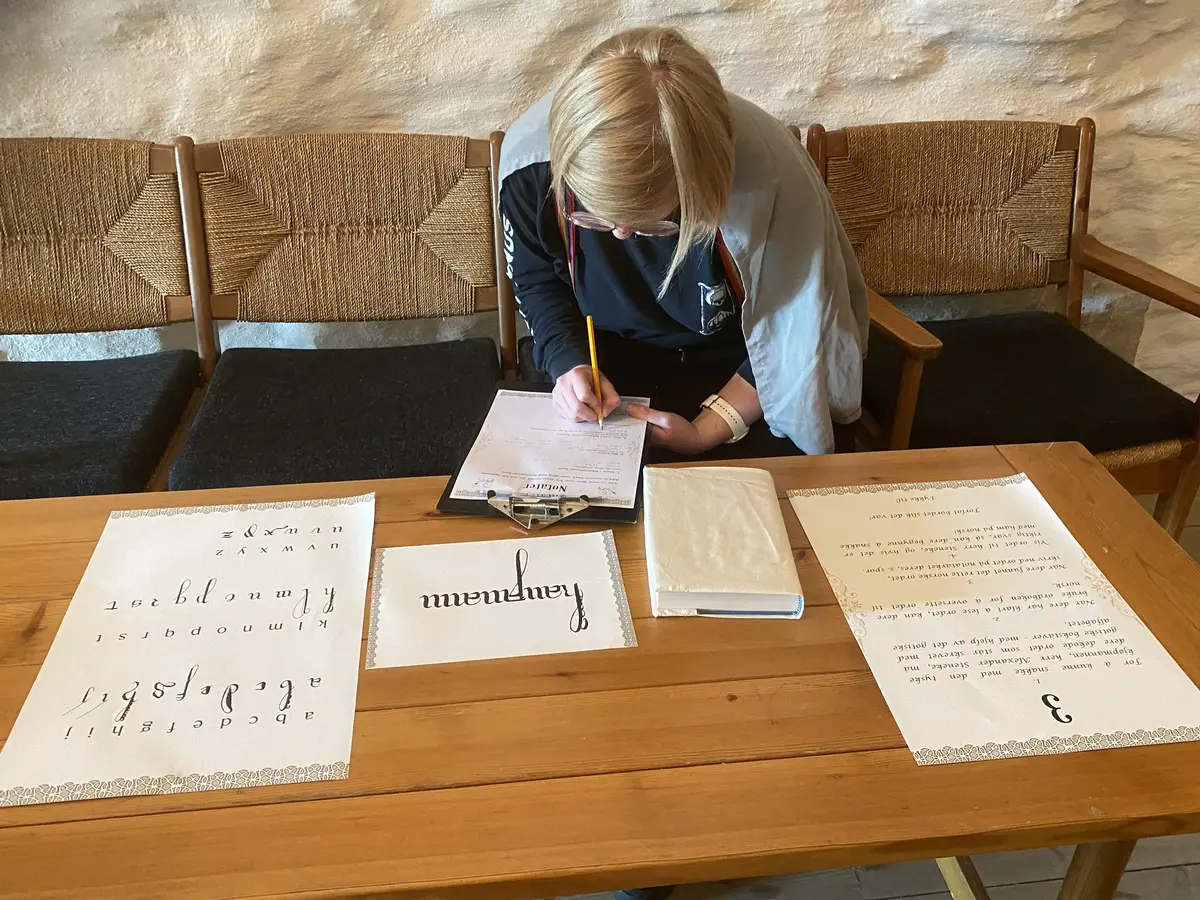 a b c d e f g h i j
a b c d e f g h i j
k l m n o p q r s t
k l m n o p q r s t
u v w x y z
u v w x y z
kaufmann
Notater
3
1.
For å kunne snakke med den tyske
kjøpmannen, herr Alexander Steneke, må
dere dekode ordet som står skrevet med
gotiske bokstaver - med hjelp av det gotiske
alfabetet.
2.
Når dere har klart å lese ordet, kan dere
bruke ordboken for å oversette ordet til
norsk.
3.
Når dere funnet det rette norske ordet,
skriv ned ordet på notatarket deres, 3. spor.
4.
Vis ordet til herr Steneke, og hvis det er
riktig svar, så kan dere begynne å snakke
med ham på norsk!
Forlat bordet slik det var!
Lykke til!